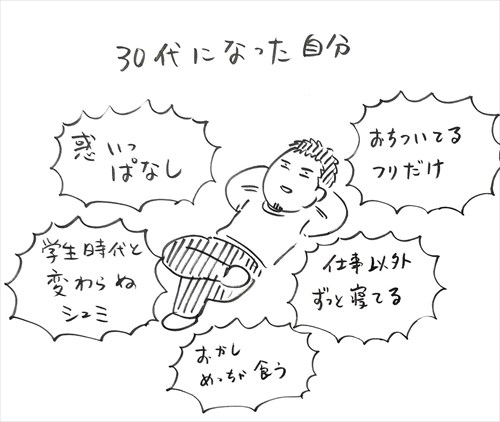 30代になった自分
惑いっ
ぱなし
おちついてる
フリだけ
学生時代と
変わらぬ
シュミ
仕事以外
ずっと寝てる
おかし
めっちゃ食う